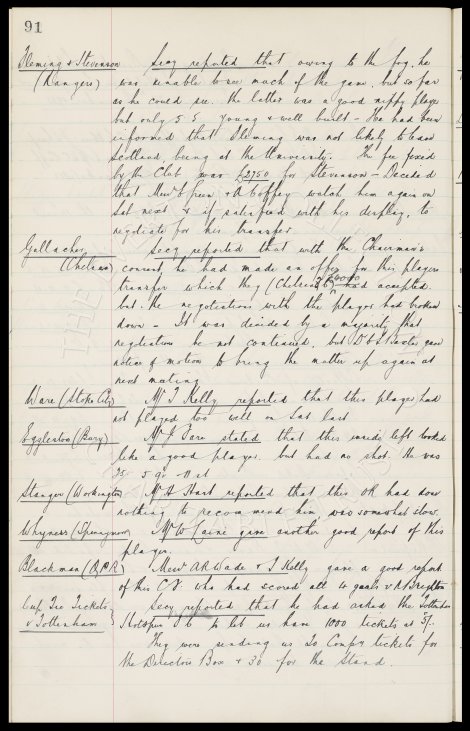 91
Fleming & Stevenson Secy reported that owing to the fog, he
(Rangers) was unable to see much of the game, but so far
as he could see, the latter was a good nippy player
but only 5.5 young & well built - He had been
informed that Fleming was not likely to leave
Scotland, being at the University. The fee fixed
by the Club was £2750 for Stevenson - Decided
that Messrs Green & A Coffey watch him again on
Sat next & if satisfied with his display, to
negotiate for his transfer
Gallacher Secy reported that with the Chairman's
(Chelsea) consent, he had made an offer for this players
transfer which they (Chelsea F.C.) had accepted
but the negotiations with the player had broken
down - It was decided by a majority that
negotiations be not continued, but gave
notice of motion to bring the matter up again at
next meeting
Ware (Stoke City) Mr T Kelly reported that this player had
not played too well on Sat last
Eggleston (Bury) Mr stated that this inside left looked
like a good player, but had no shot. He was
5.9
Stanger (Workington) Mr H Hart reported that this OR had done
nothing to recommend him, was somewhat slow.
Whyness (Spennymoor) Mr W gave another good report of this
player.
Blackman (Q.P.R) Messrs AR Wade & T Kelly gave a good report
of this C.F. who had scored all 4 goals v Brighton
Cup Tie Tickets Secy reported that he had asked the Tottenham
v Tottenham Hotspur F C to let us have 1000 tickets at 5/-
They were sending us 20 Compy tickets for
the Directors Box & 30 for the Stand.